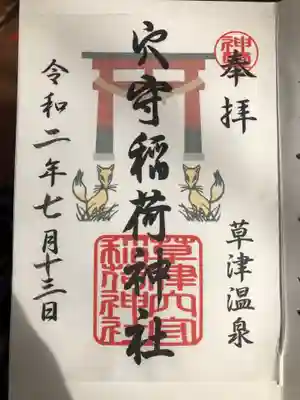 奉拝
草津温泉
穴守稲荷神社
草津穴守
稲荷神社
令和二年七月十三日